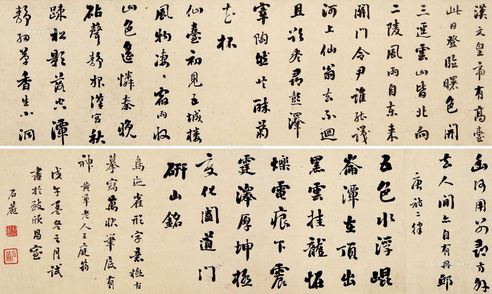 漢文皇帝有高臺
此日登臨曙色開
三晉雲山皆北向
二陵風雨自東來
關門令尹誰能識
河上仙翁去不迴
且欲近尋彭澤
宰陶然共醉菊
花杯
仙臺初見五城樓
風物淒淒宿雨收
山色遙憐秦晚
砧聲近報漢宮秋
疎松影落空潭
靜細草香生小洞
幽何用別尋方外
去人間亦自有丹邱
唐詩二律
五色水浮崑
崙潭在頂出
黑雲挂龍怪
爍電痕下震
霆澤厚坤極
變化闔道門
研山銘
形字極古
摹寫筆底有
神 黃華老人王庭筠
戊午冬之月試
書於室
石